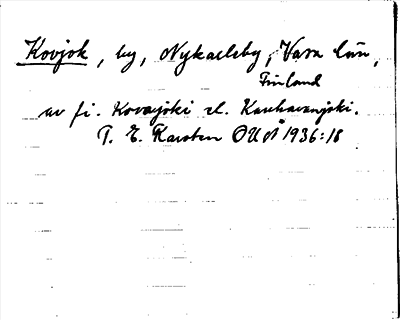 Kovjok, by, Nykarleby, Vasa län,
Finland
av fi. Kovajoki el. Kauhavanjoki.
T. E. Karsten OUÅ 1936:18